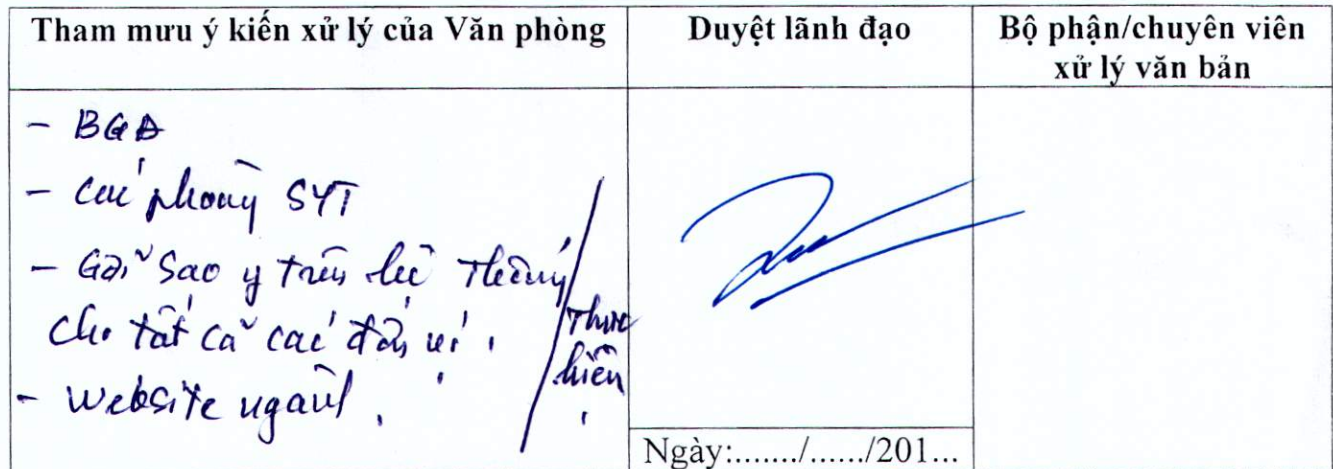 Tham mưu ý kiến xử lý của Văn phòng
Duyệt lãnh đạo
Bộ phận/chuyên viên
xử lý văn bản
- BGĐ
- Các phòng SYT
- Gởi Sao y trên hệ Thống
cho tất cả các đơn vị.
- Website ngành.
Thực
hiện
Ngày:......./....../201...